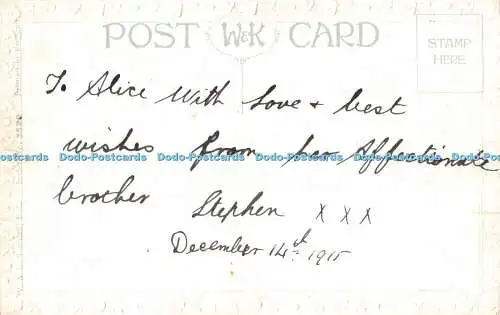 POST W&K CARD
STAMP
HERE
To Alice With Love + best
wishes from her Affectionate
Dodo-Postcards Dodo-Postcards Dodo-Postcards Dodo-Postcards Dodo-Postcards
brother Stephen x x x
December 14th 1915